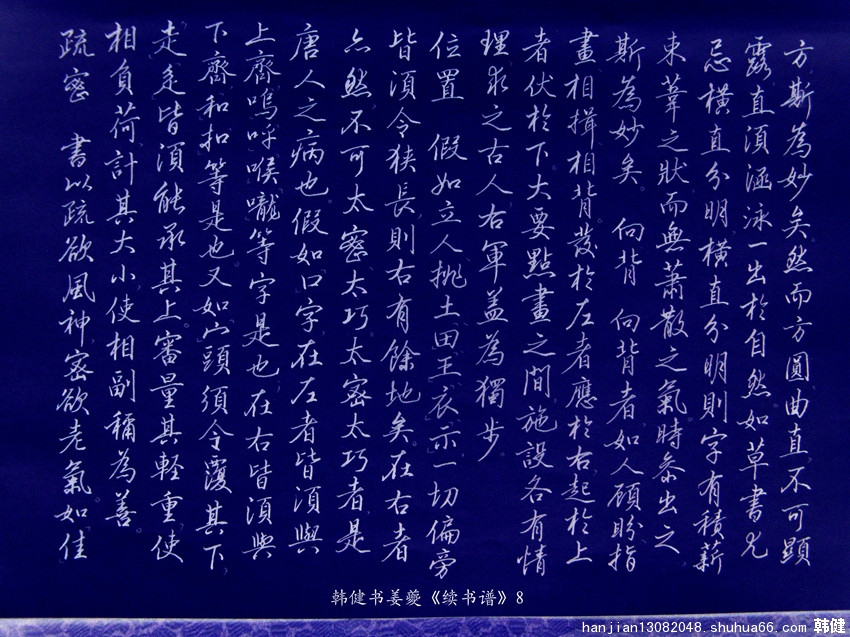 方斯為妙矣然而方圓曲直不可顯
露直須涵泳一出於自然如草書尤
忌橫直分明橫直分明則字有積薪
束葦之狀而無蕭散之氣時參出之
斯為妙矣。向背 向背者如人顧盼指
畫相揖相背發於左者應於右起於上
者伏於下大要點畫之間施設各有情
理求之古人右軍蓋為獨步
位置 假如立人挑土田王衣示一切偏旁
皆須令狹長則右有餘地矣。在右者
亦然不可太密太巧太密太巧者是
唐人之病也假如口字在左者皆須與
上齊嗚呼喉嚨等字是也在右皆須與
下齊和扣等是也又如宀頭須令覆其下
走辵皆須能承其上審量其輕重使
相負荷計其大小使相副稱為善。
疏密 書以疏欲風神密欲老氣如佳
韩健书姜夔《续书谱》8
hanjian13082048.shuhua66.com 韩健